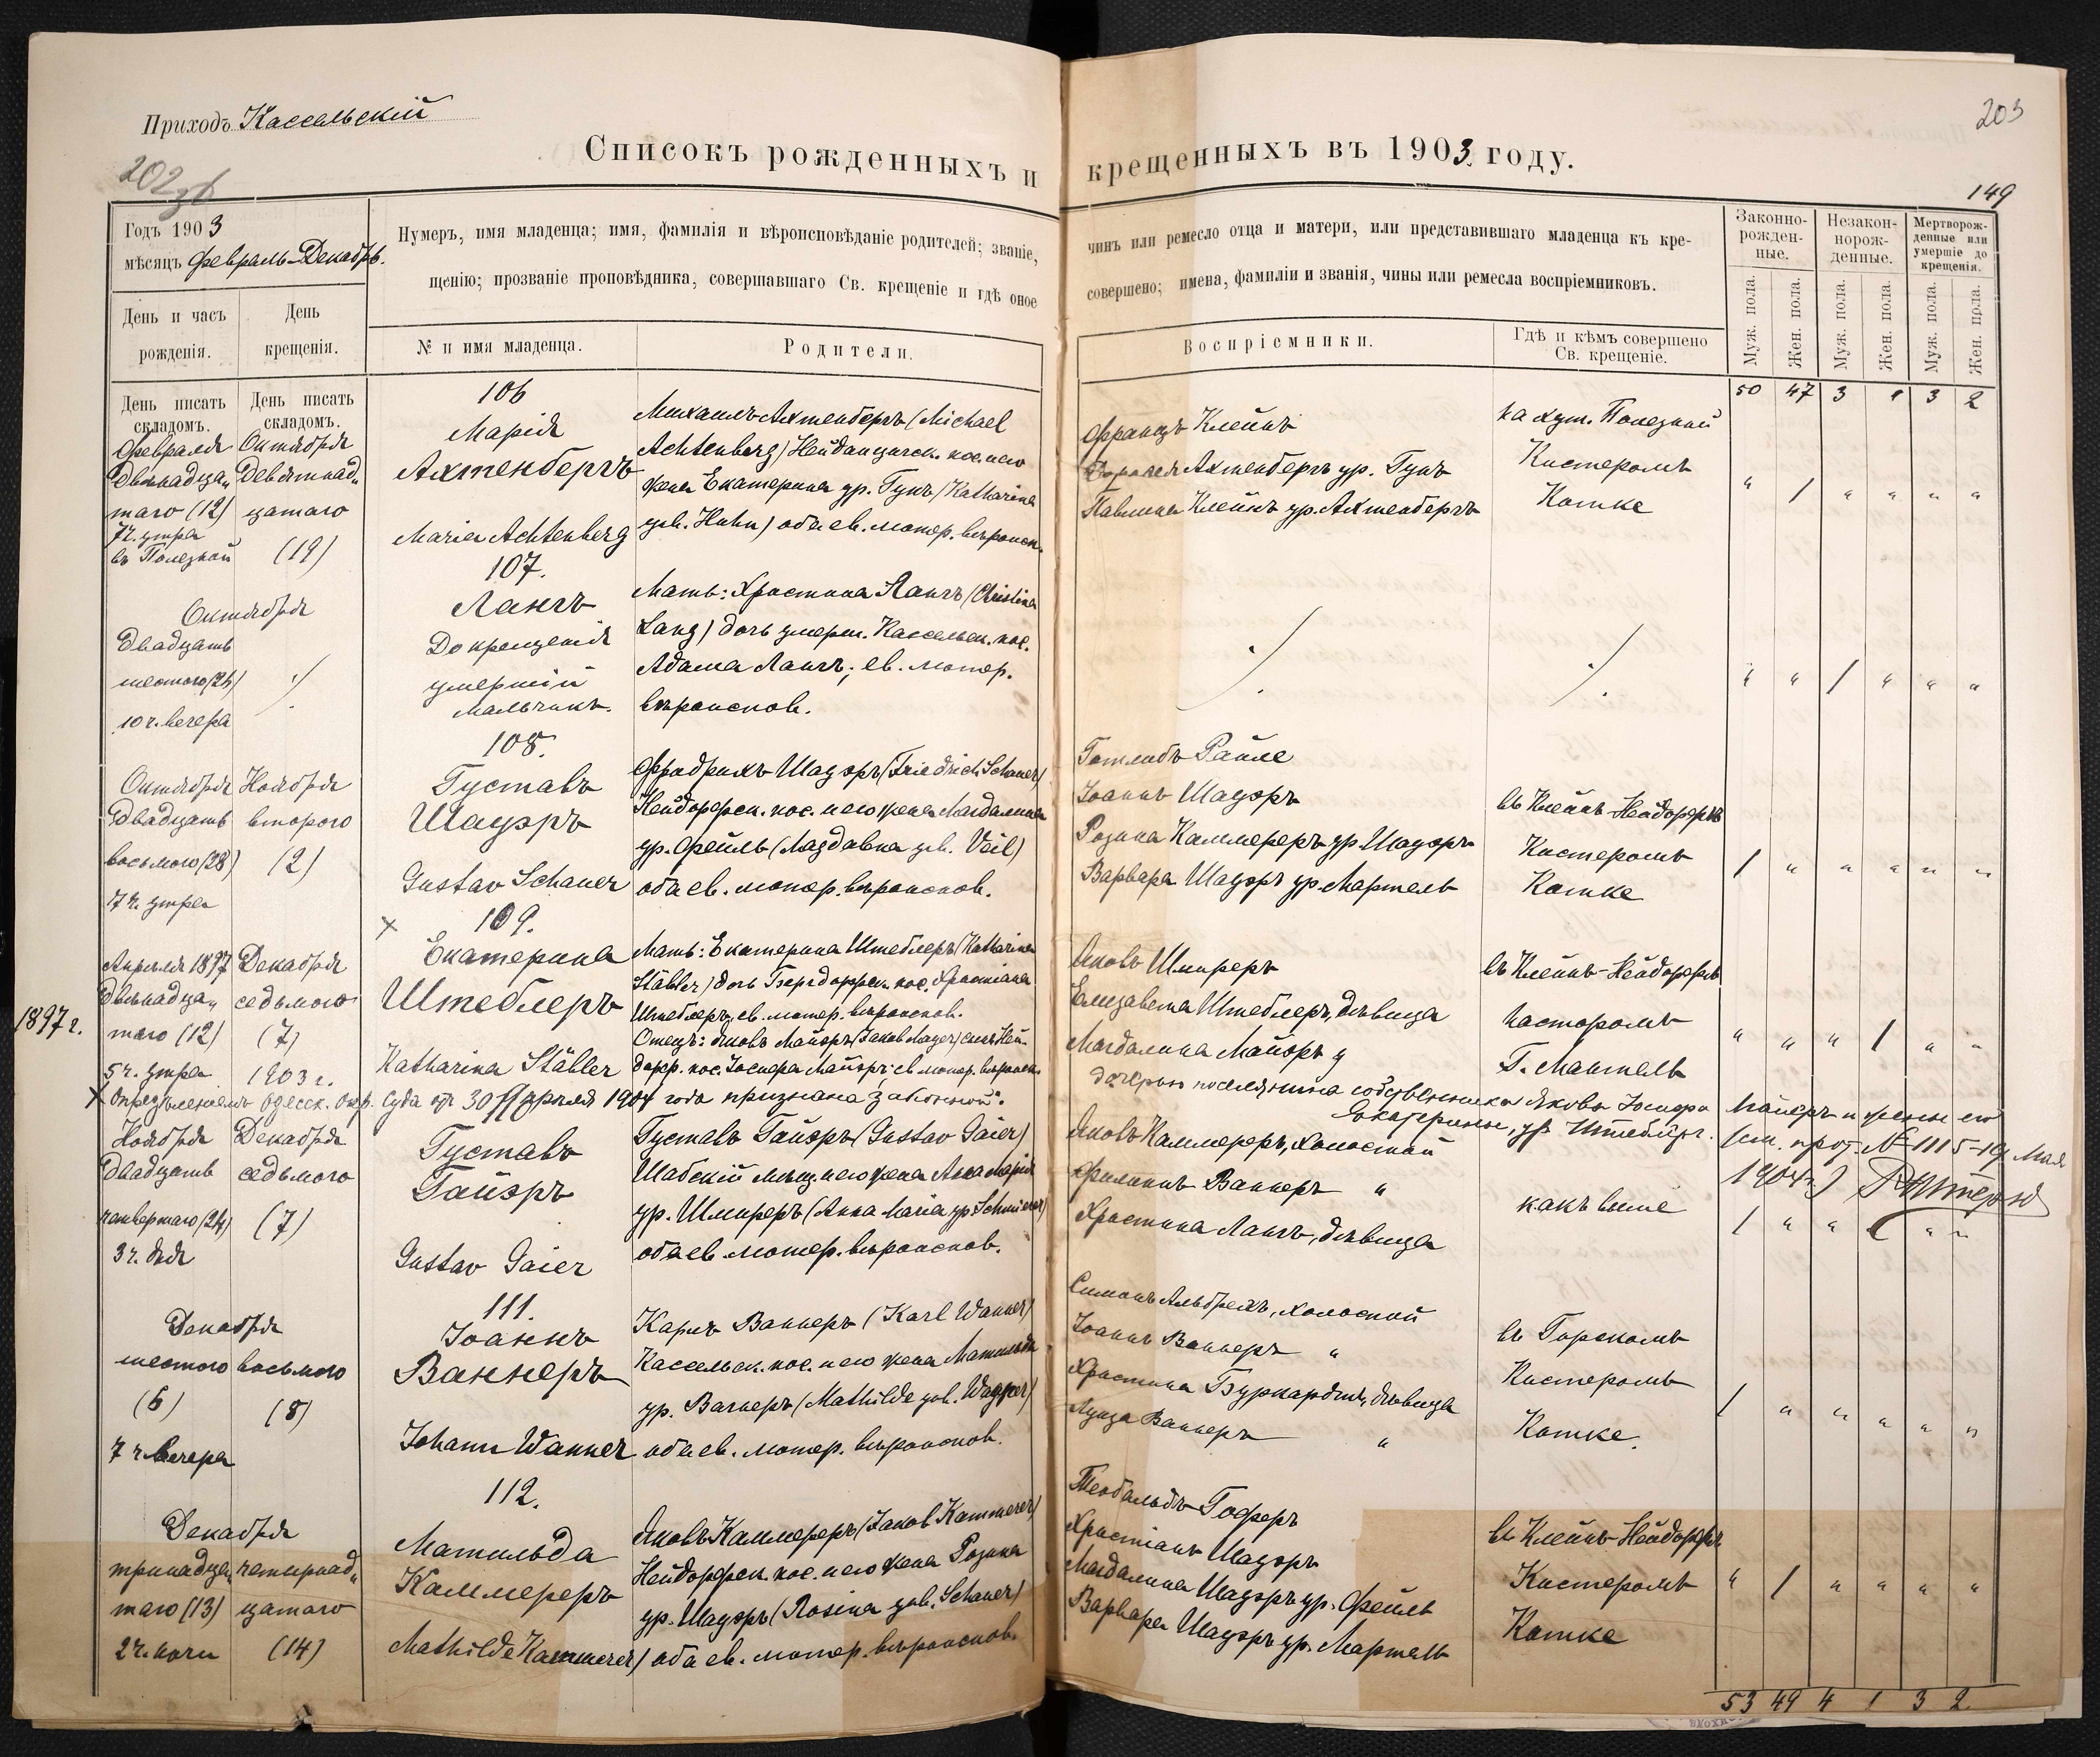 Приходъ Кассельскій
202 об
203
149
Списокъ рожденныхъ и крещенныхъ въ 1903 году.
Годъ 1903
мѣсяцъ Февраль-Декабрь.
Нумеръ, имя младенца; имя, фамилія и вѣроисповѣданіе родителей; званіе, чинъ или ремесло отца и матери, или представившаго младенца къ кре-
щенію; прозваніе проповѣдника, совершавшаго Св. крещеніе и гдѣ оное совершено; имена, фамиліи и званія, чины или ремесла воспріемниковъ.
Законно-
рожден-
ные.
Незакон-
норож-
денные.
Мертворож-
денные или
умершіе до
крещенія.
День и часъ
рожденія.
День
крещенія.
№ и имя младенца.
Родители.
Воспріемники.
Гдѣ и кѣмъ совершено
Св. крещеніе.
Муж. пола.
Жен. пола.
Муж. пола.
Жен. пола.
Муж. пола.
Жен. пола.
День писать
складомъ.
День писать
складомъ.
50 47 3 " 3 2
Февраля
двѣнадца„
таго (12)
7 ч. утра
въ Полезной
Октября
девятнад„
цатаго
(19)
106
Марія
Ахтенбергъ
Maria Achtenberg
Михаилъ Ахтенбергъ (Michael
Achtenberg) Нейданцигск. пос. и его
жена Екатерина ур. Гунъ (Katharina
geb. Huhn) оба ев. лютер. вѣроисп.
Францъ Клейнъ
Ахтенбергъ ур. Гунъ
Павлина Клейнъ ур. Ахтенбергъ
на хут. Полезной
Кистеромъ
Котке
" / " " " "
Октября
двадцать
шестого (26)
10 ч. вечера
./.
107.
Лангъ
До крещенія
умершій
мальчикъ.
Мать: Христина Лангъ (Christina
Lang) дочь умерш. Кассельск. пос.
Адама Лангъ; ев. лютер.
вѣроиспов.
./.
./.
" " / " " "
Октября
двадцать
восьмого (28)
7 ч. утра
Ноября
второго
(2)
108.
Густавъ
Шауэръ
Gustav Schauer
Фридрихъ Шауэръ (Friedrich Schauer)
Нейдорфск. пос. и его жена Магдалина
ур. Фейль (Magdalena geb. Veil)
оба ев. лютер. вѣроиспов.
Готлибъ Райле
Іоаннъ Шауэръ
Розина Каммереръ ур. Шауэръ
Варвара Шауэръ ур. Мартель
въ Клейнъ-Нейдорфѣ
Кистеромъ
Котке
/ " " " " "
1897 г.
Апрѣля 1897
двѣнадца„
таго (12)
5 ч. утра
Декабря
седьмого
(7)
1903 г.
x 109.
Екатерина
Штеблеръ
Katharina Stäbler
Мать: Екатерина Штеблеръ (Katharina
Stäbler) дочь Бергдорфск. пос. Христіана
Штеблеръ, ев. лютер. вѣроиспов.
Отецъ: Яковъ Майэръ (Jakob Mayer) сынъ Ней-
дорф. пос. Іосифа Майэръ; ев. лютер. вѣроисп.
Яковъ Шмиреръ
Елизавета Штеблеръ, дѣвица
Магдалина Майэръ
въ Клейнъ-Нейдорфѣ
пасторомъ
Г. Мантель
" " " / " "
x Опредѣленіемъ Одесск. Окр. Суда отъ 30 Апрѣля 1904 года признана законной
дочерью поселянина собственника Якова Іосифа Майеръ и жены его
Екатерины, ур. Штеблеръ. (см. прот. № 1115-19 Мая
1904 г.)
Ноября
двадцать
четвертаго (24)
3 ч. дня
Декабря
седьмого
(7)
Густавъ
Гайэръ
Gustav Gaier
Густавъ Гайэръ (Gustav Gaier)
Шабскій мѣщ. и его жена Анна Марія
ур. Шмиреръ (Anna Maria ур. Schmierer)
оба ев. лютер. вѣроиспов.
Яковъ Каммереръ, холостой
Филиппъ Ваннеръ "
Христина Лангъ, дѣвица
какъ выше
/ " " " " "
Декабря
шестого
(6)
7 ч. вечера
восьмого
(8)
111.
Іоаннъ
Ваннеръ
Johann Wanner
Карлъ Ваннеръ (Karl Wanner)
Кассельск. пос. и его жена Матильда
ур. Вагнеръ (Mathilde geb. Wagner)
оба ев. лютер. вѣроиспов.
Симонъ Альбрехъ, холостой
Іоаннъ Ваннеръ "
Христина Бургардтъ, дѣвица
Луиза Ваннеръ "
въ Горскомъ
Кистеромъ
Котке.
/ " " " " "
Декабря
тринадца„
таго (13)
2 ч. ночи
четырнад„
цатаго
(14)
112.
Матильда
Каммереръ
Mathilde Kammerer
Яковъ Каммереръ (Jakob Kammerer)
Нейдорфск. пос. и его жена Розина
ур. Шауэръ (Rosina geb. Schauer)
оба ев. лютер. вѣроиспов.
Теобальдъ Гоферъ
Христіанъ Шауэръ
Магдалина Шауэръ ур. Фейль
Варвара Шауэръ ур. Мартель
въ Клейнъ-Нейдорфѣ
Кистеромъ
Котке
" / " " " "
53 49 4 1 3 2